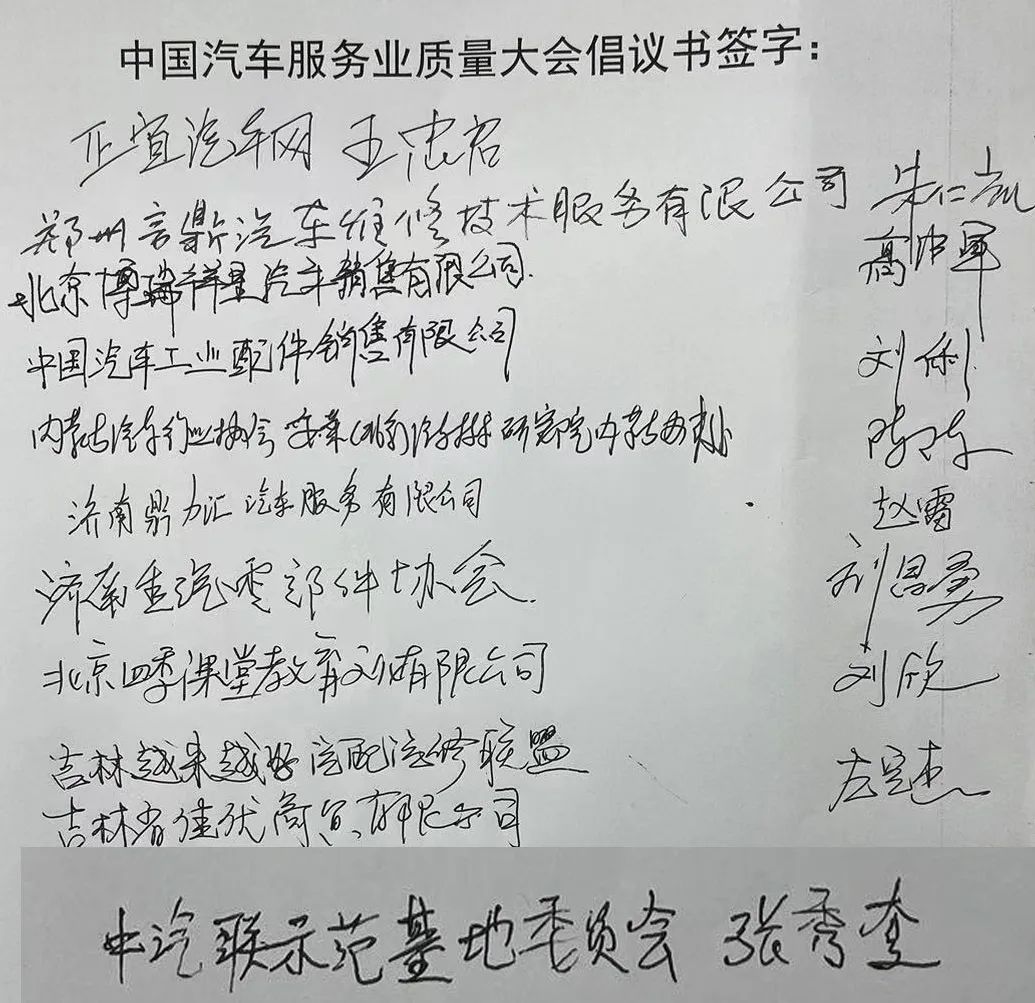 中国汽车服务业质量大会倡议书签字：
正宜汽车网 王忠宏
郑州言鼎汽车维修技术服务有限公司 朱仁岚
北京博瑞祥星汽车销售有限公司. 高沛军
中国汽车工业配件销售有限公司 刘俐
内蒙古汽车行业协会 (北京)汽车技术研究院内蒙古办 陈陈
济南鼎力汇汽车服务有限公司 赵雷
济南重汽零部件协会. 刘昌勇
北京四季课堂教育科技有限公司 刘欣
吉林越来越好汽配汽修联盟
吉林省佳优商贸有限公司
中汽联示范基地委员会 张秀奎